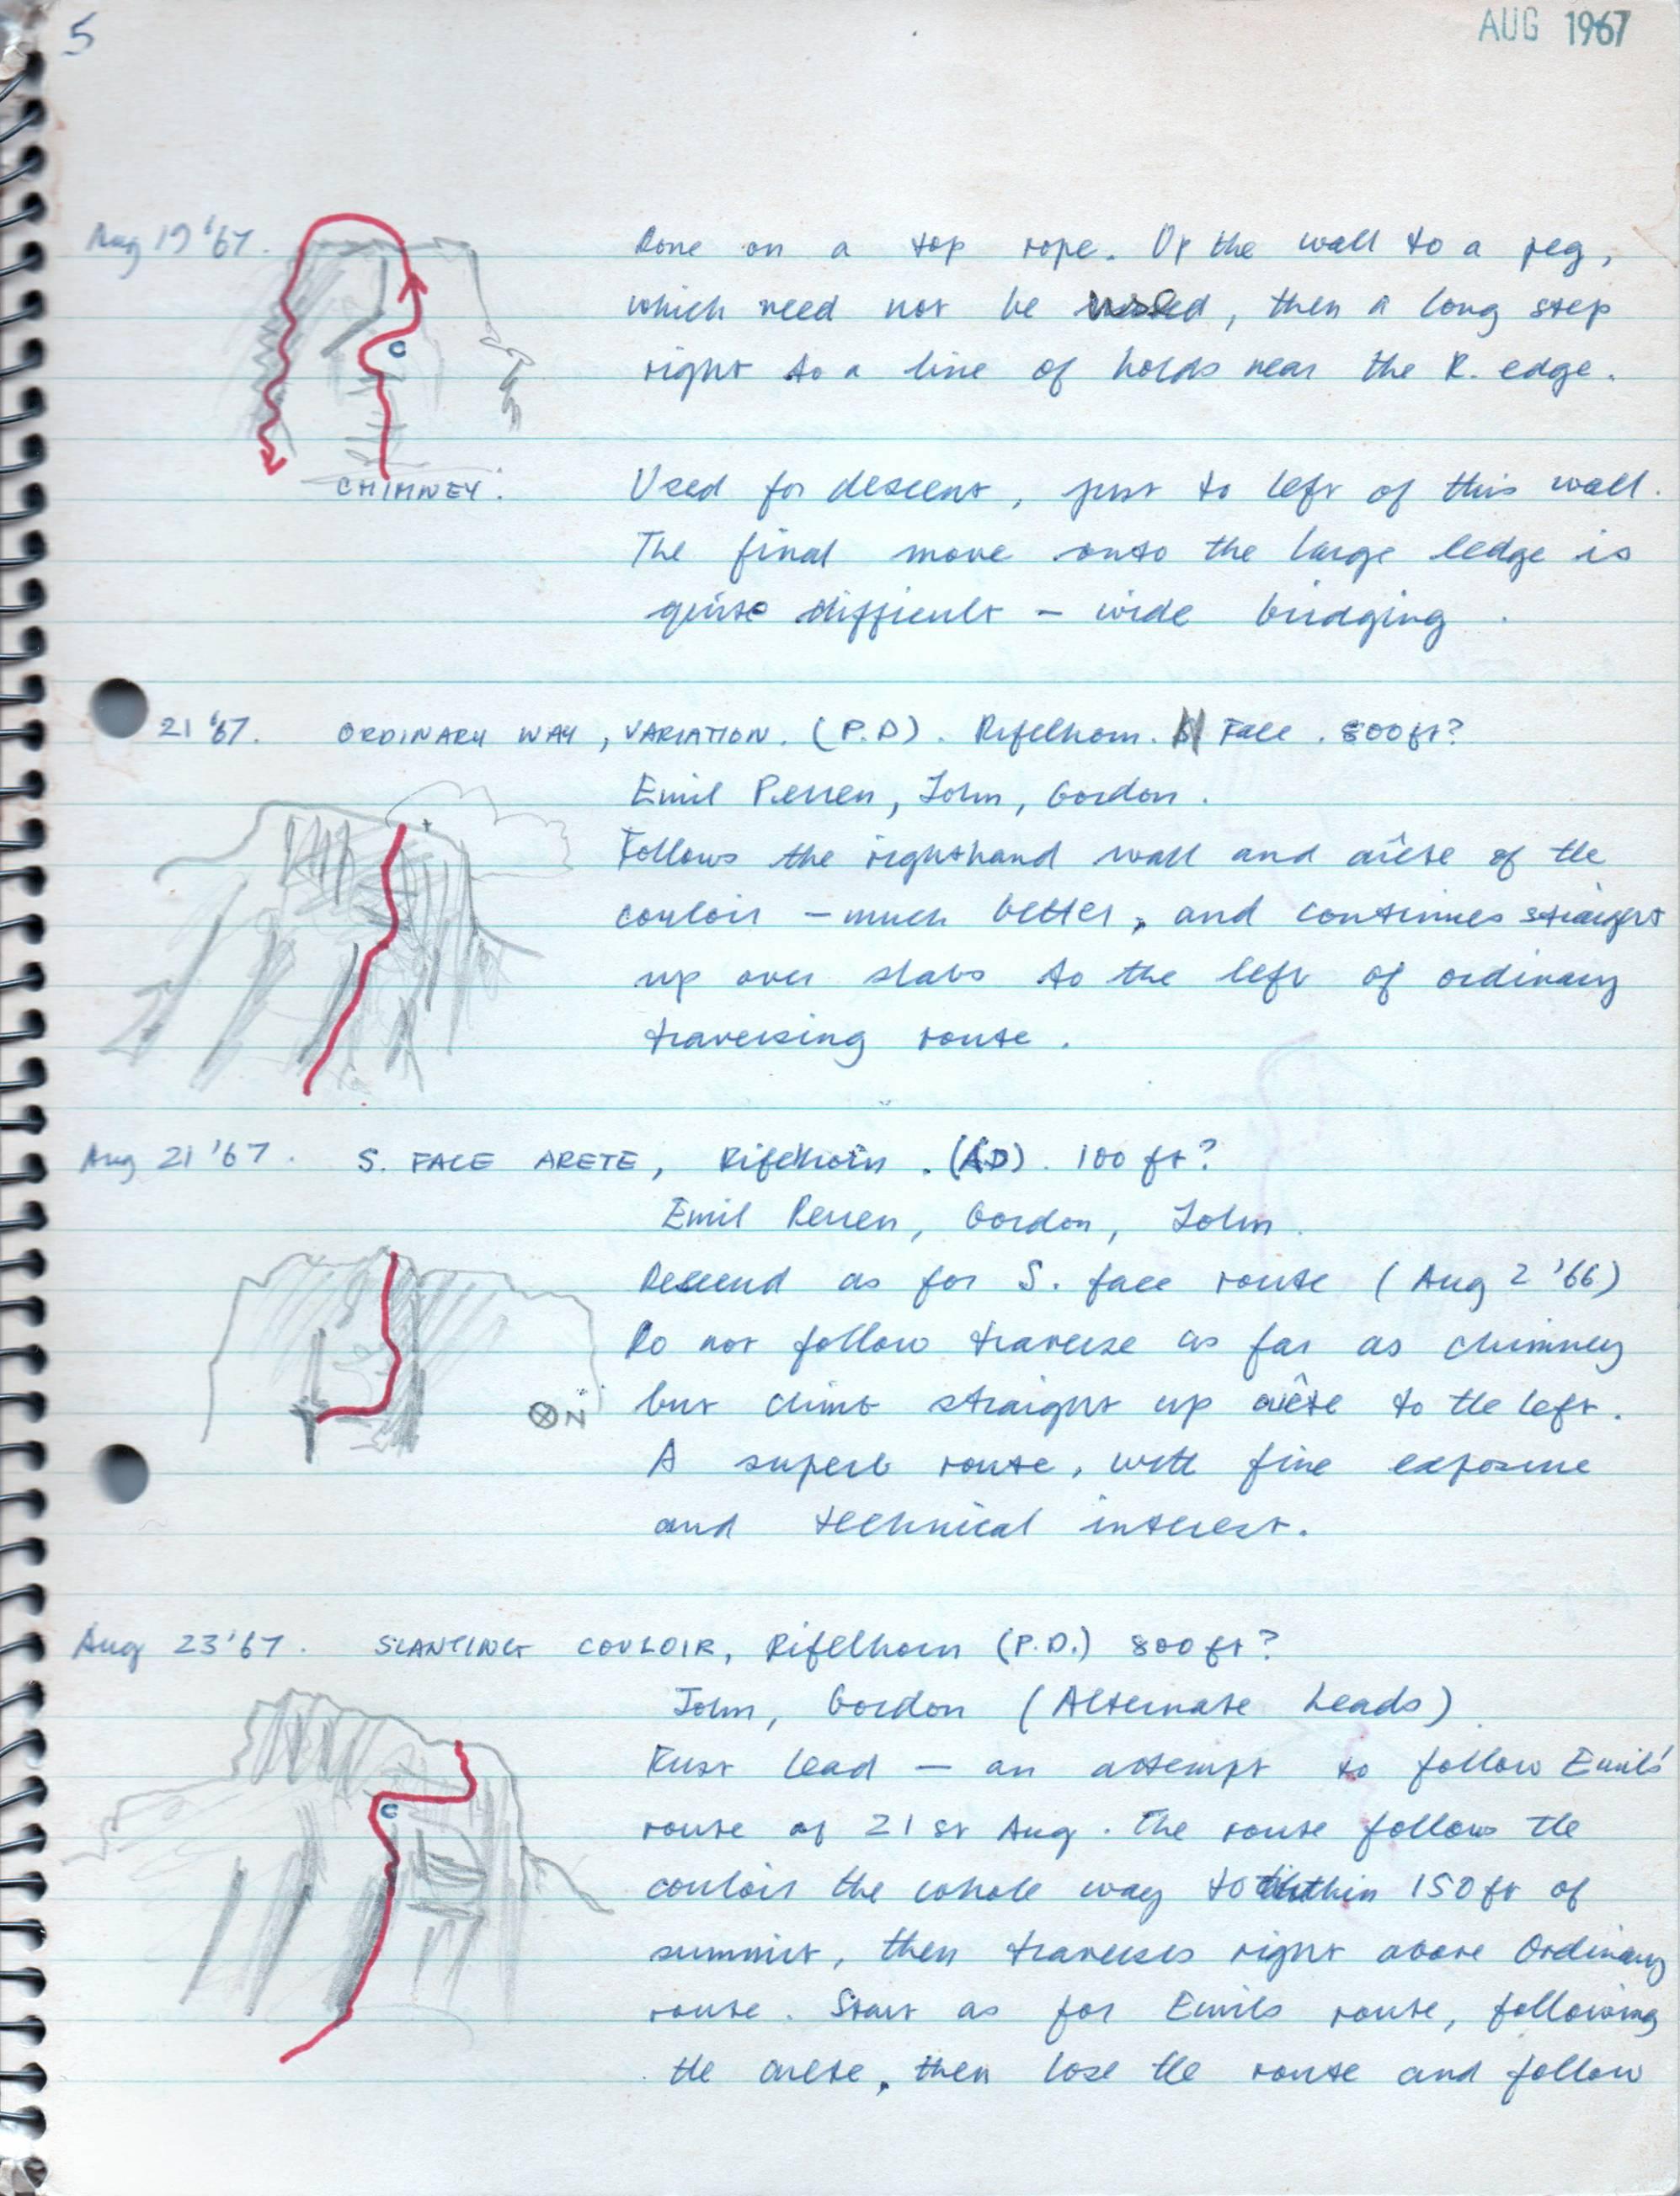 5
AUG 1967
Aug 19 '67.
Done on a top rope. Up the wall to a peg,
which need not be used, then a long step
right to a line of holds near the R. edge.
CHIMNEY.
Used for descent, just to left of this wall.
The final move onto the large ledge is
quite difficult – wide bridging.
21 '67. ORDINARY WAY, VARIATION. (P.D). Rifelhorn. N Face. 800ft?
Emil Perren, John, Gordon.
Follows the righthand wall and arête of the
couloir – much better, and continues straight
up over slabs to the left of ordinary
traversing route.
Aug 21 '67. S. FACE ARETE, Rifelhorn. (AD). 100 ft?
Emil Perren, Gordon, John.
Descend as for S. face route (Aug 2 '66)
Do not follow traverse as far as chimney
but climb straight up arête to the left.
N
A superb route, with fine exposure
and technical interest.
Aug 23 '67. SLANTING COULOIR, Rifelhorn (P.D.) 800ft?
John, Gordon (Alternate Leads).
First lead – an attempt to follow Emils'
route of 21st Aug. The route follows the
couloir the whole way to within 150ft of
summit, then traverses right above Ordinary
route. Start as for Emils route, following
the arete, then lose the route and follow